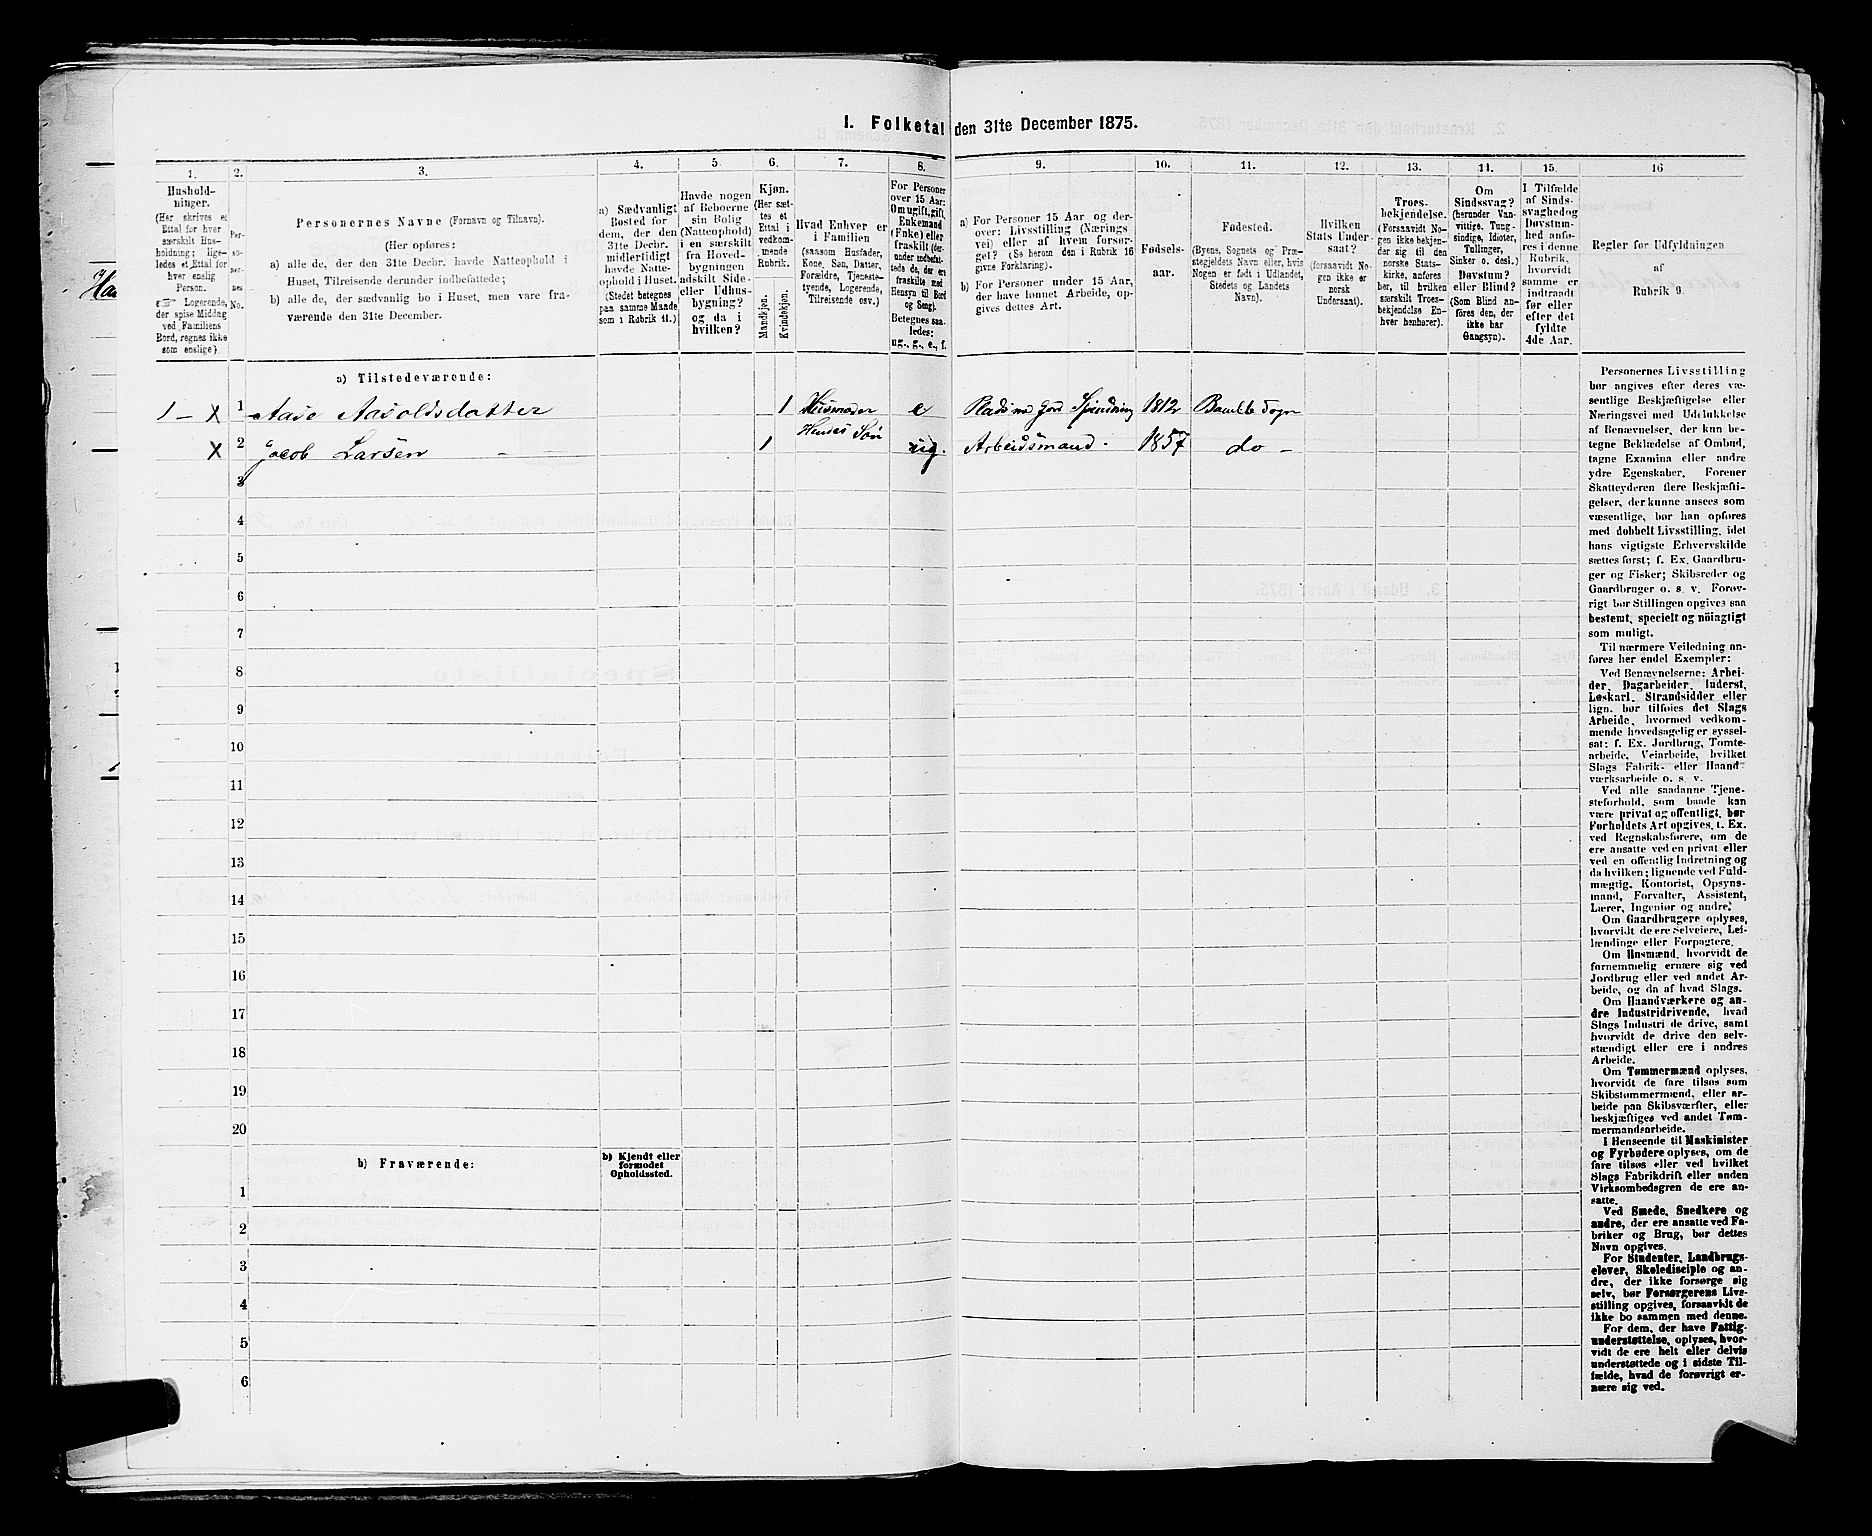 I. Folketal den 31te December 1875.
1.
2.
3.
4.
5.
6.
7.
8.
9.
10.
11.
12.
13.
14.
15.
16
Hushold-
ninger.
(Her skrives et
Ettal for hver
særskilt Hus-
holdning; lige-
ledes et Ettal for
hver enslig
Person.
Logerende,
der spise Middag
ved Familiens
Bord, regnes ikke
som enslige).
Per-
so-
ner-
nes
No.
Personernes Navne (Fornavn og Tilnavn).
(Her opføres:
a) alle de, der den 31te Decbr. havde Natteophold i
Huset, Tilreisende derunder indbefattede;
b) alle de, der sædvanlig bo i Huset, men vare fra-
værende den 31te December.
a) Sædvanligt
Bosted for
dem, der den
31te Decbr.
midlertidigt
havde Natte-
ophold i Huset.
(Stedet betegnes
paa samme Maade
som i Rubrik 11.)
Havde nogen
af Beboerne
sin Bolig
(Natteophold)
i en særskilt
fra Hoved-
bygningen
adskilt Side-
eller Udhus-
bygning?
og da i
hvilken?
Kjøn.
(Her sæt-
tes et
Ettal i
vedkom-
mende
Rubrik.
Mandkjøn.
Kvindekjøn.
Hvad Enhver er
i Familien
(saasom Husfader,
Kone, Søn, Datter,
Forældre, Tjeneste-
tyende, Logerende,
Tilreisende osv.)
For Personer
over 15 Aar:
Om ugift, gift,
Enkemand
(Enke) eller
fraskilt (der-
under indbefat-
tede de, der ere
fraskilte med
Hensyn til Bord
og Seng).
Betegnes saa-
ledes:
ug., g., e., f.
a) For Personer 15 Aar og der-
over: Livsstilling (Nærings
vei) eller af hvem forsør-
get? (Se herom den i Rubrik 16
givne Forklaring).
b) For Personer under 15 Aar,
der have lønnet Arbeide, op-
gives dettes Art.
Fødsels-
aar.
Fødested.
(Byens, Sognets og Præ-
stegjeldets Navn eller, hvis
Nogen er født i Udlandet,
Stedets og Landets
Navn).
Hvilken
Stats Under-
saat?
(forsaavidt No-
gen ikke er
norsk
Undersaat).
Troes-
bekjendelse.
(Forsaavidt No-
gen ikke bekjen-
der sig til den
norske Stats-
kirke, anføres
her, til hvilken
særskilt Troes-
bekjendelse En-
hver henhører).
Om
Sindssvag?
(herunder Van-
vittige, Tung-
sindige, Idioter,
Tullinger,
Sinker o. desl.)
Døvstum?
eller Blind?
(Som Blind an-
føres den, der
ikke har
Gangsyn).
I Tilfælde
af Sinds-
svaghed og
Døvstum-
hed anfø-
res i denne
Rubrik,
hvorvidt
samme er
indtraadt
før eller
efter det
fyldte
4de Aar.
Regler for Udfyldningen
af
Rubrik 9.
a) Tilstedeværende:
1 - X 1 Aase Aasoldsdatter 1 Husmoder e Pladsmo Spinding 1812 Bamble Sogn
X 2 Jacob Larsen 1 Hendes Søn ug. Arbeidsmand. 1857 do -
3
4
5
6
7
8
9
10
11
12
13
14
15
16
17
18
19
20
b) Fraværende:
b) Kjendt eller
formodet
Opholdssted.
1
2
3
4
5
6
Personernes Livsstilling
bør angives efter deres væ-
sentlige Beskjæftigelse eller
Næringsvei med Udelukkelse
af Benævnelser, der kun be-
tegne Beklædelse af Ombud,
tagne Examina eller andre
ydre Egenskaber. Forener
Skatteyderen flere Beskjæfti-
gelser, der kunne ansees som
væsentlige, bør han opføres
med dobbelt Livsstilling, idet
hans vigtigste Erhvervskilde
sættes først; f. Ex. Gaardbru-
ger og Fisker; Skibsreder og
Gaardbruger o. s. v. Forøv-
rigt bør Stillingen opgives saa
bestemt, specielt og nöiagtigt
som muligt.
Til nærmere Veiledning an-
føres her endel Exempler:
Ved Benævnelserne: Arbei-
der, Dagarbeider, Inderst,
Løskarl, Strandsidder eller
lign. bør tilføies det Slags
Arbeide, hvormed vedkom-
mende hovedsagelig er syssel-
sat; f. Ex. Jordbrug, Tomte-
arbeide, Veiarbeide, hvilket
Slags Fabrik- eller Haand-
værksarbeide o. s. v.
Ved alle saadanne Tjene-
steforhold, som baade kan
være privat og offentligt, bør
Forholdets Art opgives, f. Ex.
ved Regnskabsførere, om de
ere ansatte ved en privat eller
ved en offentlig Indretning og
da hvilken; lignende ved Fuld-
mægtig, Kontorist, Opsyns-
mand, Forvalter, Assistent,
Lærer, Ingeniør og andre.
Om Gaardbrugere oplyses,
hvorvidt de ere Selveiere, Lei-
lændinge eller Forpagtere.
Om Husmænd, hvorvidt de
fornemmelig ernære sig ved
Jordbrug eller ved andet Ar-
beide, og da af hvad Slags.
Om Haandværkere og an-
dre Industridrivende, hvad
Slags Industri de drive, samt
hvorvidt de drive den selv-
stændigt eller ere i andres
Arbeide.
Om Tømmermænd oplyses,
hvorvidt de fare tilsøs som
Skibstømmermænd, eller ar-
beide paa Skibsværfter, eller
beskjæftiges ved andet Tøm-
mermandsarbeide.
I Henseende til Maskinister
og Fyrbødere oplyses, om de
fare tilsøs eller ved hvilket
Slags Fabrikdrift eller anden
Virksomhedsgren de ere an-
satte.
Ved Smede, Snedkere og
andre, der ere ansatte ved Fa-
briker og Brug, bør dettes
Navn opgives.
For Studenter, Landbrugs-
elever, Skoledisciple og an-
dre, der ikke forsørge sig
selv, bør Forsørgerens Livs-
stilling opgives, forsaavidt de
ikke bo sammen med denne.
For dem, der have Fattig-
understøttelse, oplyses, hvor-
vidt de ere helt eller delvis
understøttede og i sidste Til-
fælde, hvad de forøvrigt er-
nære sig ved.